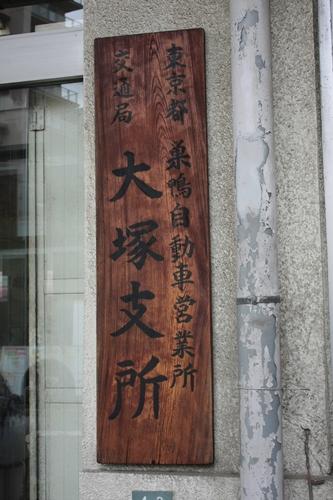 東京都
交通局
巣鴨自動車営業所
大塚支所